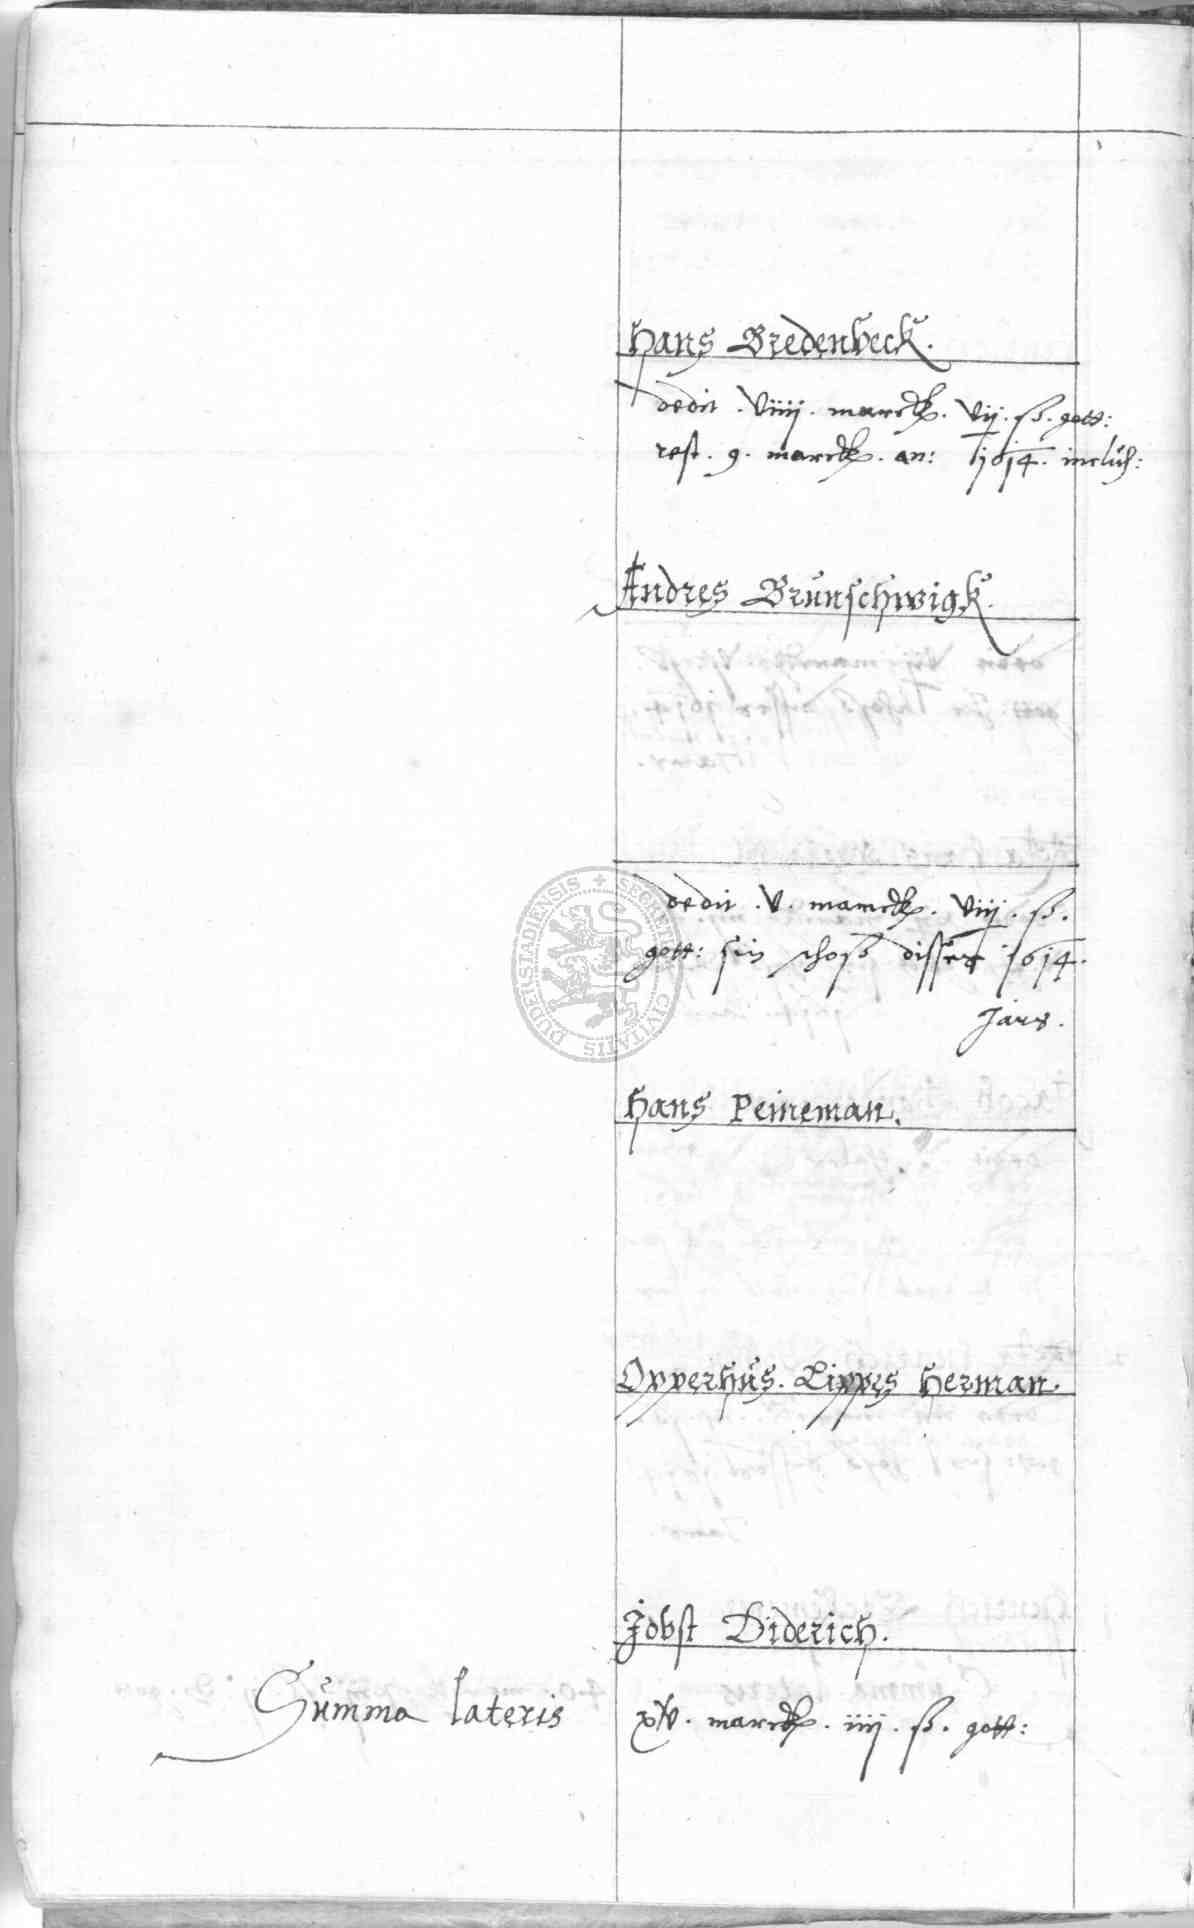 Hans Bredenbeck.
dedit . Viiij . marck . Vij . ß . gott:
rest . 9 . marck . an: 1614 . inclus:
Andres Brunschwigk.
dedit . V . marck . Viij . ß .
gott: sin schoß disser 1614 .
Jars .
Hans Peineman.
Opperhus . Lippes Herman .
Jobst Diderich .
Summa lateris xV . marck . iiij . ß . gott:
SECRETU CIVITATIS DUDERSTADIENSIS